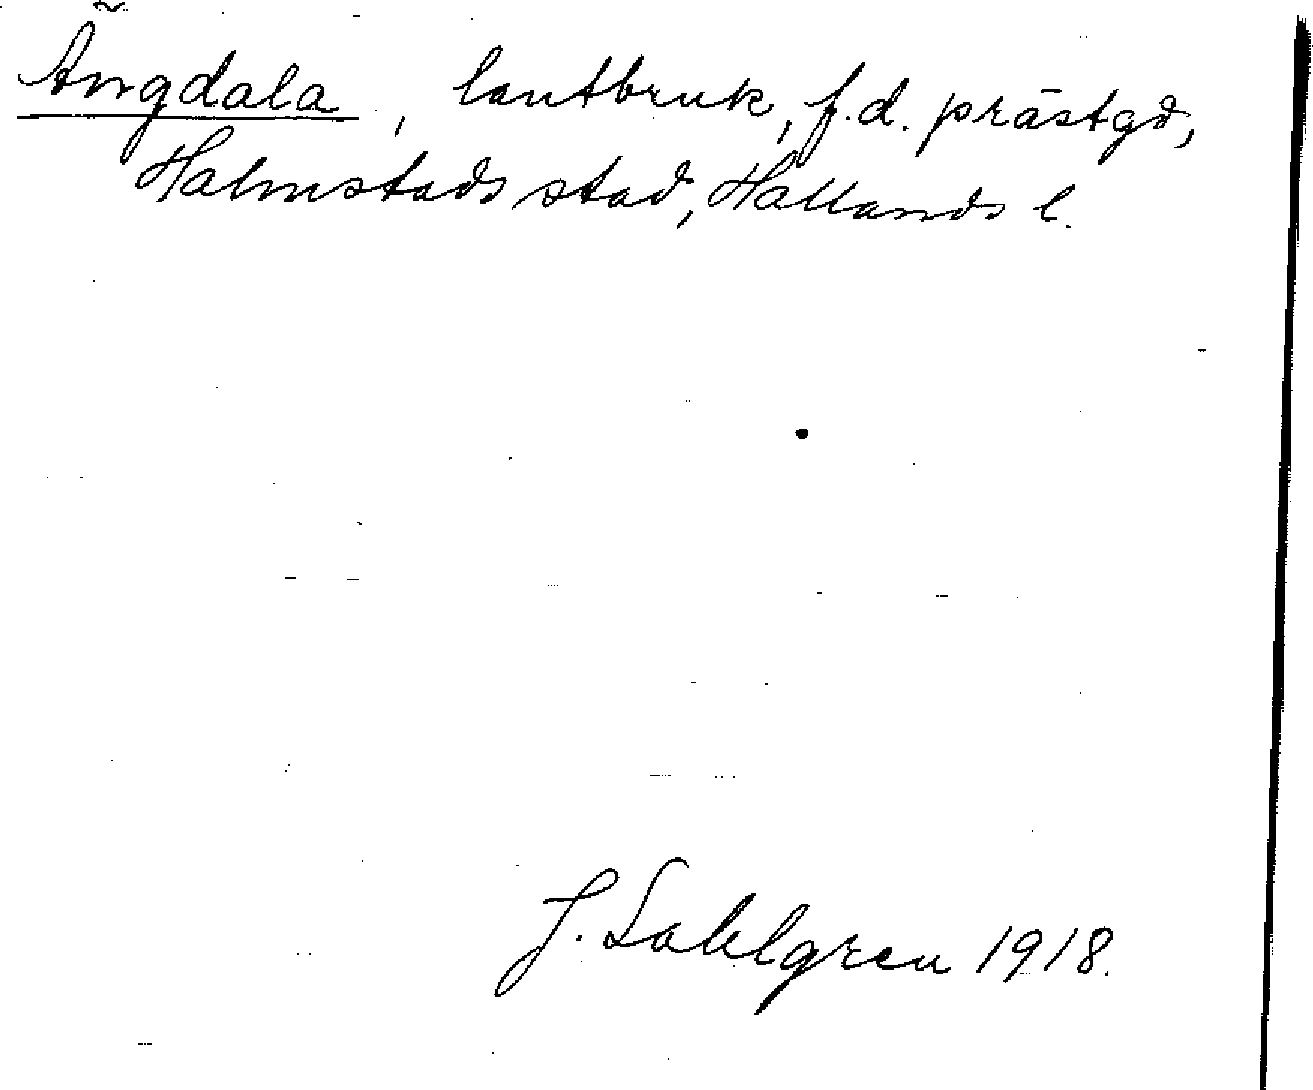 Ängdala, lantbruk, f.d. prästgd,
Halmstads stad, Hallands l.
J. Sahlgren 1918.